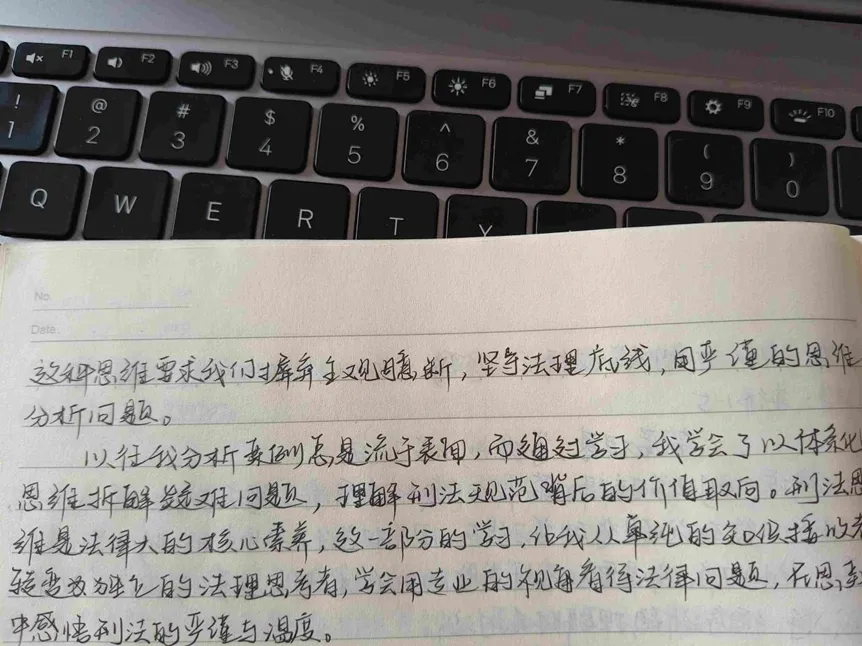 F1 F2 F3 F4 F5 F6 F7 F8 F9 F10
! @ # $ % ^ & * ( )
1 2 3 4 5 6 7 8 9 0
Q W E R T Y
No.
Date.
这种思维要求我们摒弃主观臆断，坚守法理底线，用严谨的思维
分析问题。
以往我分析案例总是流于表面，而通过学习，我学会了以体系化
思维拆解疑难问题，理解刑法规范背后的价值取向。刑法思
维是法律人的核心素养，这一部分的学习，让我从单纯的知识接收者
转变为独立的法理思考者，学会用专业的视角看待法律问题，在思
中感悟刑法的严谨与温度。